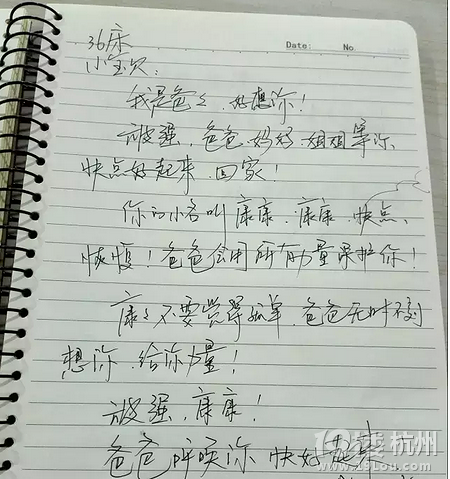 Date: No
36床
小宝贝：
我是爸爸，好想你！
坚强，爸爸、妈妈、姐姐等你
快点好起来，回家！
你的小名叫康康，康康，快点
恢复！爸爸会用所有力量保护你！
康康不要觉得孤单，爸爸无时不刻
想你，给你力量！
坚强，康康！
爸爸呼唤你 快好起来
19楼杭州
www.19lou.com